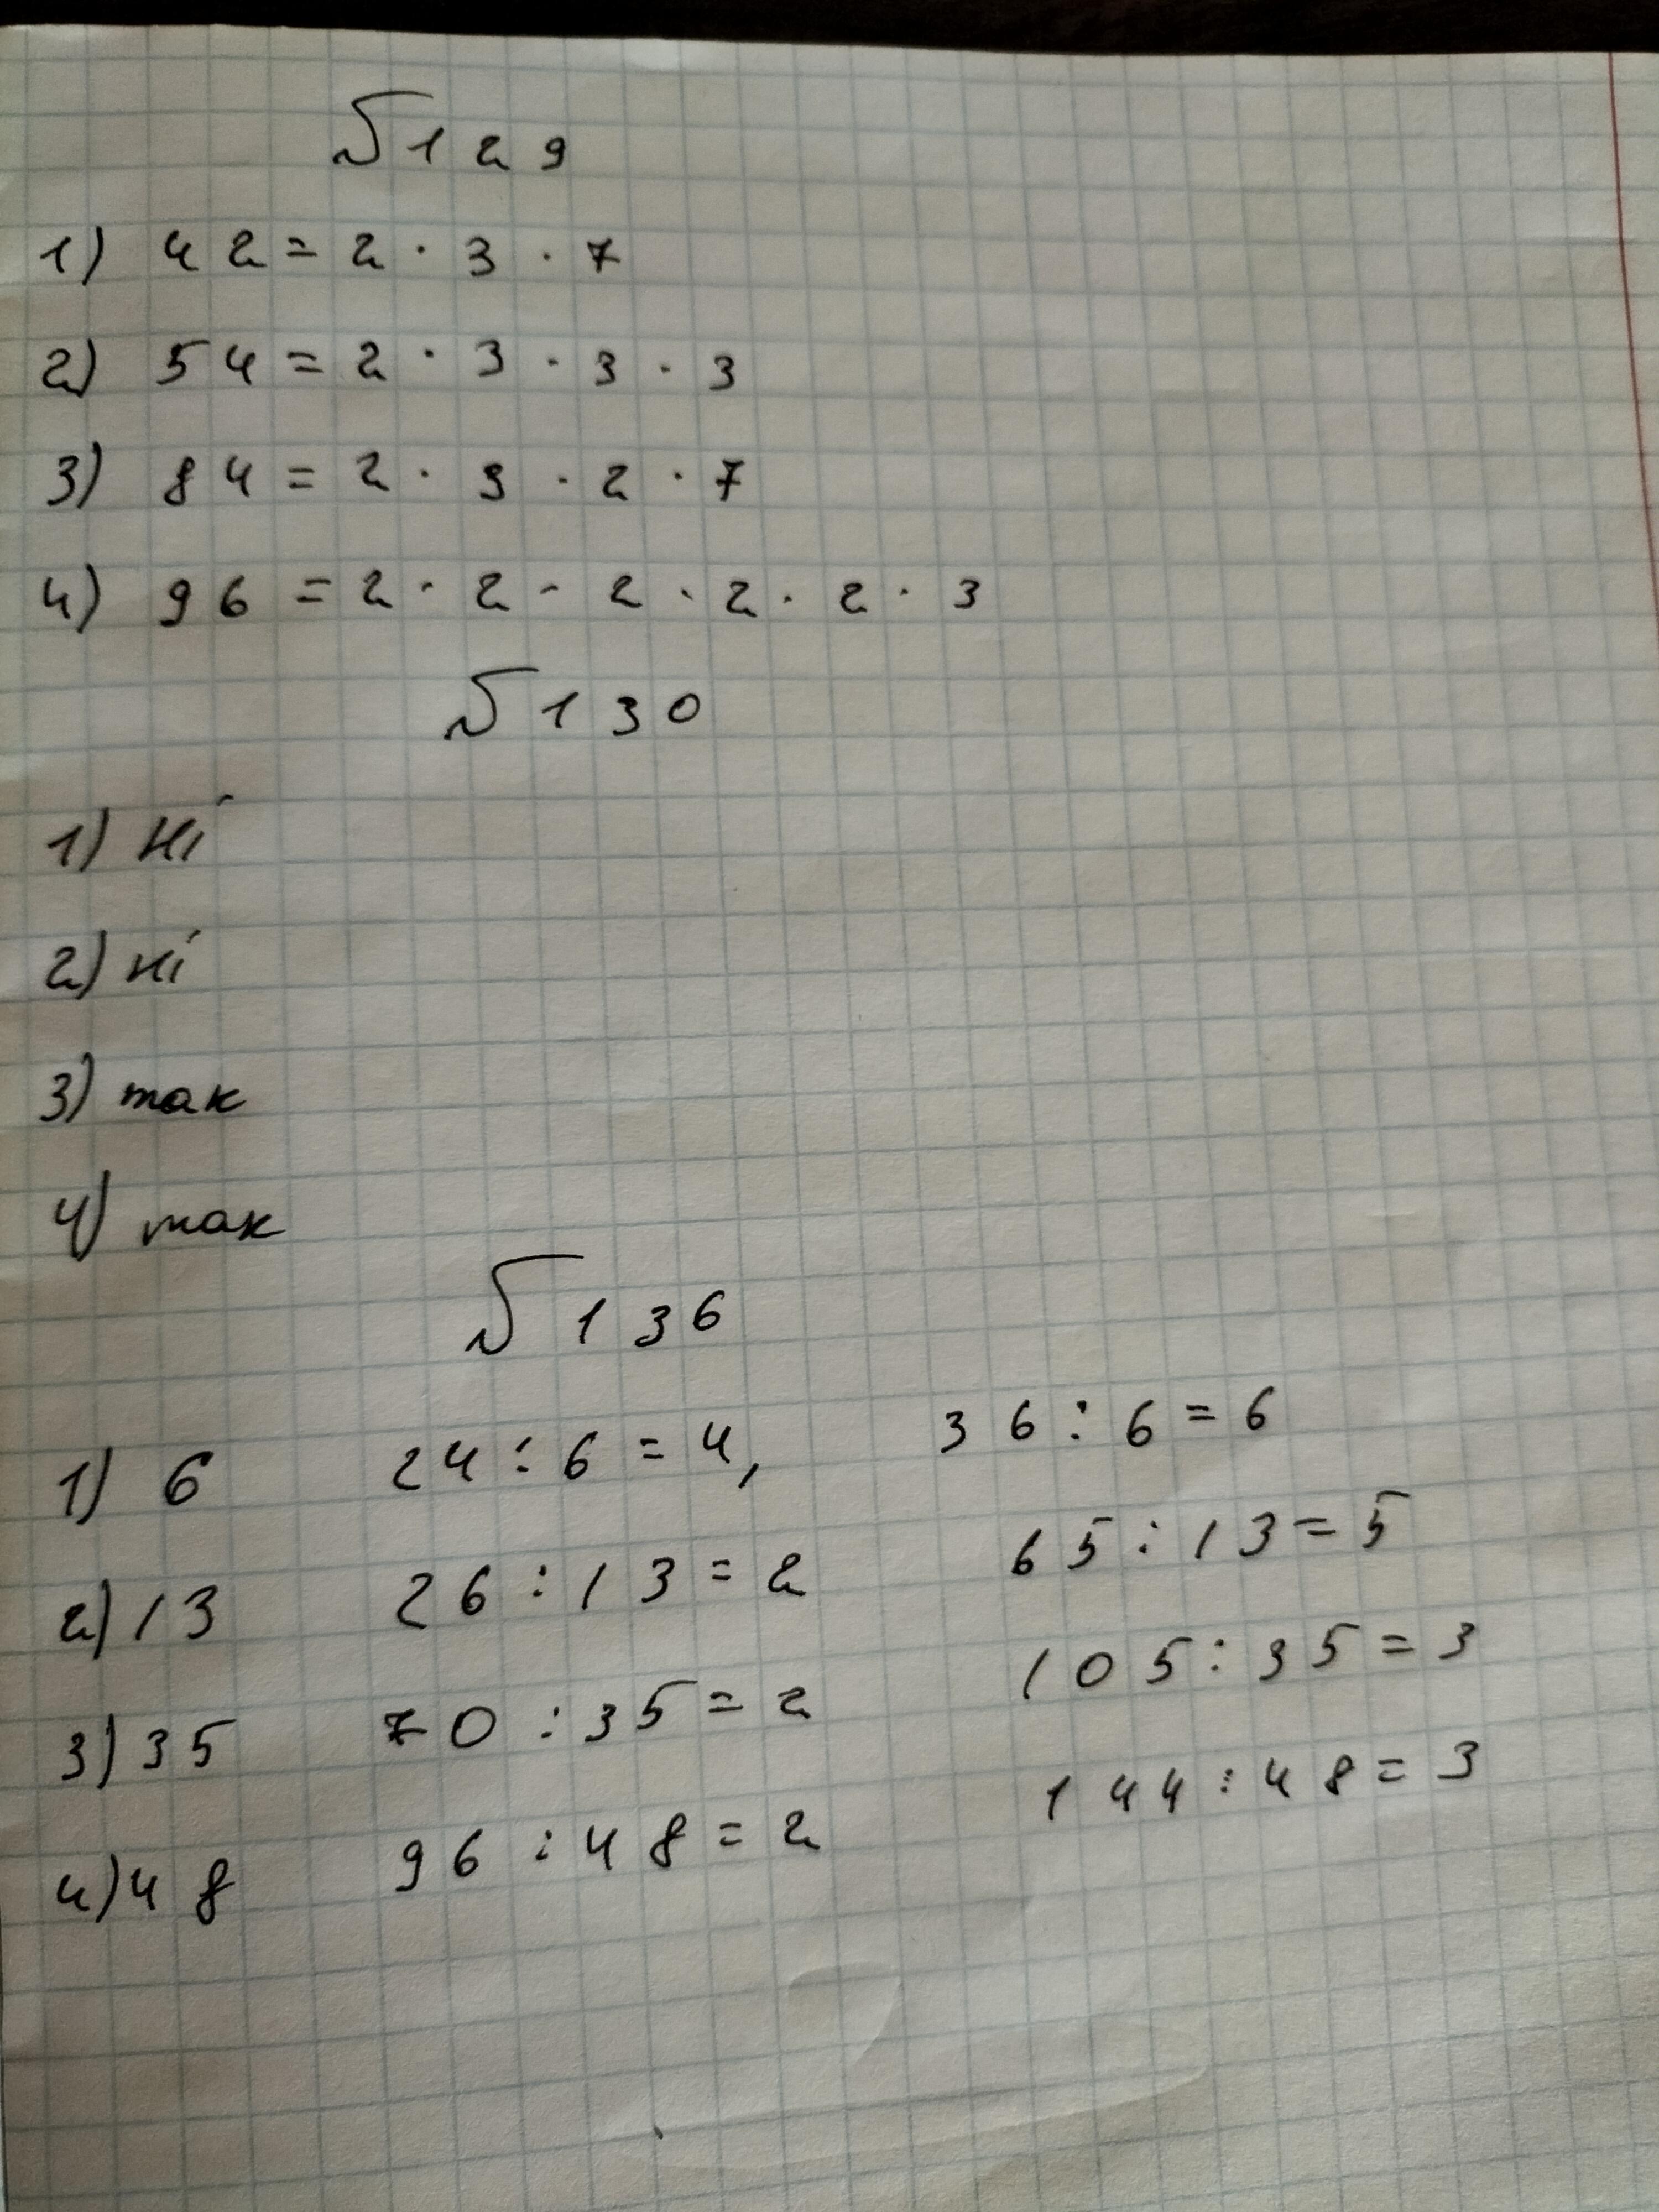 №129
1) 42 = 2 · 3 · 7
2) 54 = 2 · 3 · 3 · 3
3) 84 = 2 · 3 · 2 · 7
4) 96 = 2 · 2 · 2 · 2 · 2 · 3
№130
1) Ні
2) ні
3) так
4) так
№136
1) 6 24 : 6 = 4, 36 : 6 = 6
2) 13 26 : 13 = 2 65 : 13 = 5
3) 35 70 : 35 = 2 105 : 35 = 3
4) 48 96 : 48 = 2 144 : 48 = 3